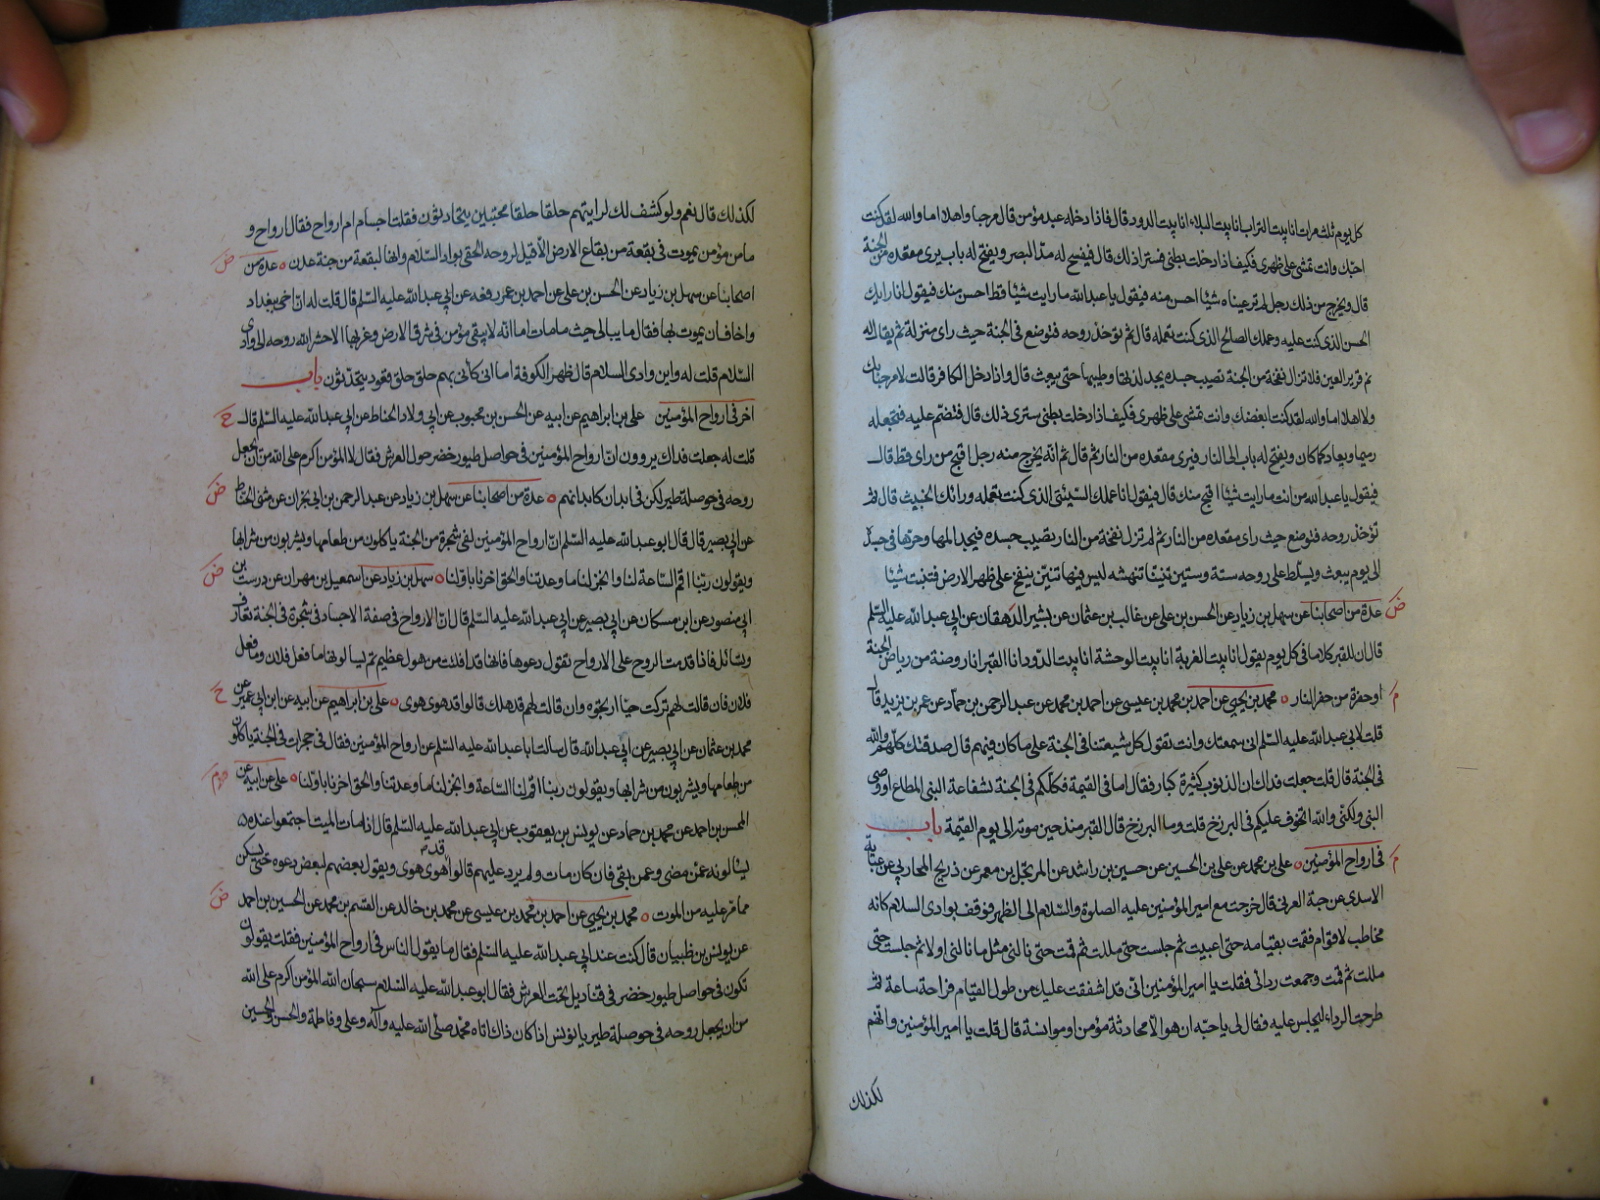 كل يوم ثلث مرات انا بيت التراب انا بيت البلاء انا بيت الدود قال فاذا دخله عبد مؤمن قال مرحبا واهلا اما والله لقد كنت
احبك وانت تمشى على ظهرى فكيف اذا دخلت بطنى فسترا ذلك قال فيفسح له مد البصر ويفتح له باب يرى مقعده من الجنة
قال ويخرج من ذلك رجل لم تر عيناه شيئا احسن منه فيقول يا عبد الله ما رايت شيئا قط احسن منك فيقول انا رايك
الحسن الذى كنت عليه وعملك الصالح الذى كنت تعمله قال ثم تؤخذ روحه فتوضع فى الجنة حيث راى منزلة ثم يقال له
نم قرير العين فلا تزال نفخة من الجنة تصيب جسده يجد لذتها وطيبها حتى يبعث قال واذا دخل الكافر قالت لا مرحبا بك
ولا اهلا اما والله لقد كنت ابغضك وانت تمشى على ظهرى فكيف اذا دخلت بطنى سترى ذلك قال فتضم عليه فتجعله
رميما ويعاد كما كان ويفتح له باب الى النار فيرى مقعده من النار ثم قال ثم انه يخرج منه رجل اقبح من راى قط قال
فيقول يا عبد الله من انت ما رايت شيئا اقبح منك قال فيقول انا عملك السيئ الذى كنت تعمله ورائك الخبيث قال ثم
تؤخذ روحه فتوضع حيث راى مقعده من النار ثم لم تزل نفخة من النار تصيب جسده فيجد المها وحرها فى جسده
الى يوم يبعث ويسلط على روحه ستة وستين تنينا تنهشه ليس فيها تنين ينفخ على ظهر الارض فتنبت شيئا
عدة من اصحابنا عن سهل بن زياد عن الحسن بن على عن غالب بن عثمان عن بشير الدهقان عن ابى عبد الله عليه السلم
قال ان للقبر كلاما فى كل يوم يقول انا بيت الغربة انا بيت الوحشة انا بيت الدود انا القبر انا روضة من رياض الجنة
او حفرة من حفر النار ٥ محمد بن يحيى عن احمد بن محمد بن عيسى عن احمد بن محمد عن عبد الرحمن بن حماد عن عمر بن يزيد قال
قلت لابى عبد الله عليه السلم انى سمعتك وانت تقول كل شيعتنا فى الجنة على ما كان فيهم قال صدقتك كلهم والله
فى الجنة قال قلت جعلت فداك ان الذنوب كثيرة كبار فقال اما فى القيمة فكلكم فى الجنة بشفاعة النبى المطاع او وصى
النبى ولكنى والله اتخوف عليكم فى البرزخ قلت وما البرزخ قال القبر منذ حين موته الى يوم القيمة باب
فى ارواح المؤمنين ٥ على بن محمد عن على بن الحسين عن حسين بن راشد عن المرتجل بن معمر عن ذريح المحاربى عن عباية
الاسدى عن حبة العرنى قال خرجت مع امير المؤمنين عليه الصلوة والسلام الى الظهر فوقف بوادى السلام كانه
مخاطب لاقوام فقمت بقيامه حتى اعييت ثم جلست حتى مللت ثم قمت حتى نالنى مثل ما نالنى اولا ثم جلست حتى
مللت ثم قمت وجمعت ردائى فقلت يا امير المؤمنين انى قد اشفقت عليك من طول القيام فراحة ساعة ثم
طرحت الرداء ليجلس عليه فقال لى يا حبة ان هو الا محادثة مؤمن او موانسة قال قلت يا امير المؤمنين وانهم
لكذلك
لكذلك قال نعم ولو كشف لك لرايتهم حلقا حلقا محتبين يتحادثون فقلت اجسام ام ارواح فقال ارواح و
ما من مؤمن يموت فى بقعة من بقاع الارض الا قيل لروحه الحقى بواد السلام وانها لبقعة من جنة عدن ٥ عدة من
اصحابنا عن سهل بن زياد عن الحسن بن على عن احمد بن عمر رفعه عن ابى عبد الله عليه السلم قال قلت له ان اخى ببغداد
واخاف ان يموت بها فقال ما يبالى حيث ما مات اما انه لا يبقى مؤمن فى شرق الارض وغربها الا حشر الله روحه الى وادى
السلام قلت له واين وادى السلام قال ظهر الكوفة اما انى كانى بهم حلق حلق قعود يتحدثون باب
اخر فى ارواح المؤمنين على بن ابراهيم عن ابيه عن الحسن بن محبوب عن ابى ولاد الحناط عن ابى عبد الله عليه السلم قال
قلت له جعلت فداك يروون ان ارواح المؤمنين فى حواصل طيور خضر حول العرش فقال لا المؤمن اكرم على الله من ان يجعل
روحه فى حوصلة طير لكن فى ابدان كابدانهم ٥ عدة من اصحابنا عن سهل بن زياد عن عبد الرحمن بن ابى نجران عن مثنى الحناط
عن ابى بصير قال قال ابو عبد الله عليه السلم ان ارواح المؤمنين لفى شجرة من الجنة ياكلون من طعامها ويشربون من شرابها
ويقولون ربنا اقم الساعة لنا وانجز لنا ما وعدتنا والحق اخرنا باولنا ٥ سهل بن زياد عن اسمعيل بن مهران عن درست بن
ابى منصور عن ابن مسكان عن ابى بصير عن ابى عبد الله عليه السلم قال ان الارواح فى صفة الاجساد فى شجرة فى الجنة تعارف
وتسائل فاذا قدمت الروح على الارواح تقول دعوها فانها قد افلتت من هول عظيم ثم يسالونها ما فعل فلان وما فعل
فلان فان قالت لهم تركت حيا ارتجوه وان قالت لهم قد هلك قالوا قد هوى هوى ٥ على بن ابراهيم عن ابيه عن ابن ابى عمير عن
محمد بن عثمان عن ابى بصير عن ابى عبد الله قال سالت ابا عبد الله عليه السلم عن ارواح المؤمنين فقال فى حجرات فى الجنة ياكلون
من طعامها ويشربون من شرابها ويقولون ربنا اقم لنا الساعة وانجز لنا ما وعدتنا والحق اخرنا باولنا ٥ على عن ابيه عن
المحسن بن احمد عن محمد بن حماد عن يونس بن يعقوب عن ابى عبد الله عليه السلم قال اذا مات الميت اجتمعوا عنده
يسالونه عمن مضى وعمن بقى فان كان مات ولم يرد عليهم قالوا قد هوى هوى ويقول بعضهم لبعض دعوه حتى يسكن
مما مر عليه من الموت ٥ محمد بن يحيى عن احمد بن محمد بن عيسى عن محمد بن خالد عن القسم بن محمد عن الحسين بن احمد
عن يونس بن ظبيان قال كنت عند ابى عبد الله عليه السلم فقال ما يقول الناس فى ارواح المؤمنين فقلت يقولون
تكون فى حواصل طيور خضر فى قناديل تحت العرش فقال ابو عبد الله عليه السلام سبحان الله المؤمن اكرم على الله
من ان يجعل روحه فى حوصلة طير يا يونس اذا كان ذلك اتاه محمد صلى الله عليه وآله وعلى وفاطمة والحسن والحسين